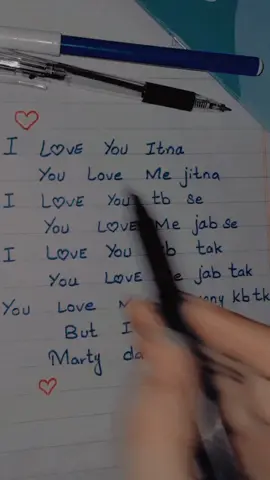 I LOVE You Itna
You Love Me jitna
I LOVE You tb se
You LOVE Me jab se
I LOVE You tak
You LOVE jab tak
You Love kb tk
But I
Marty